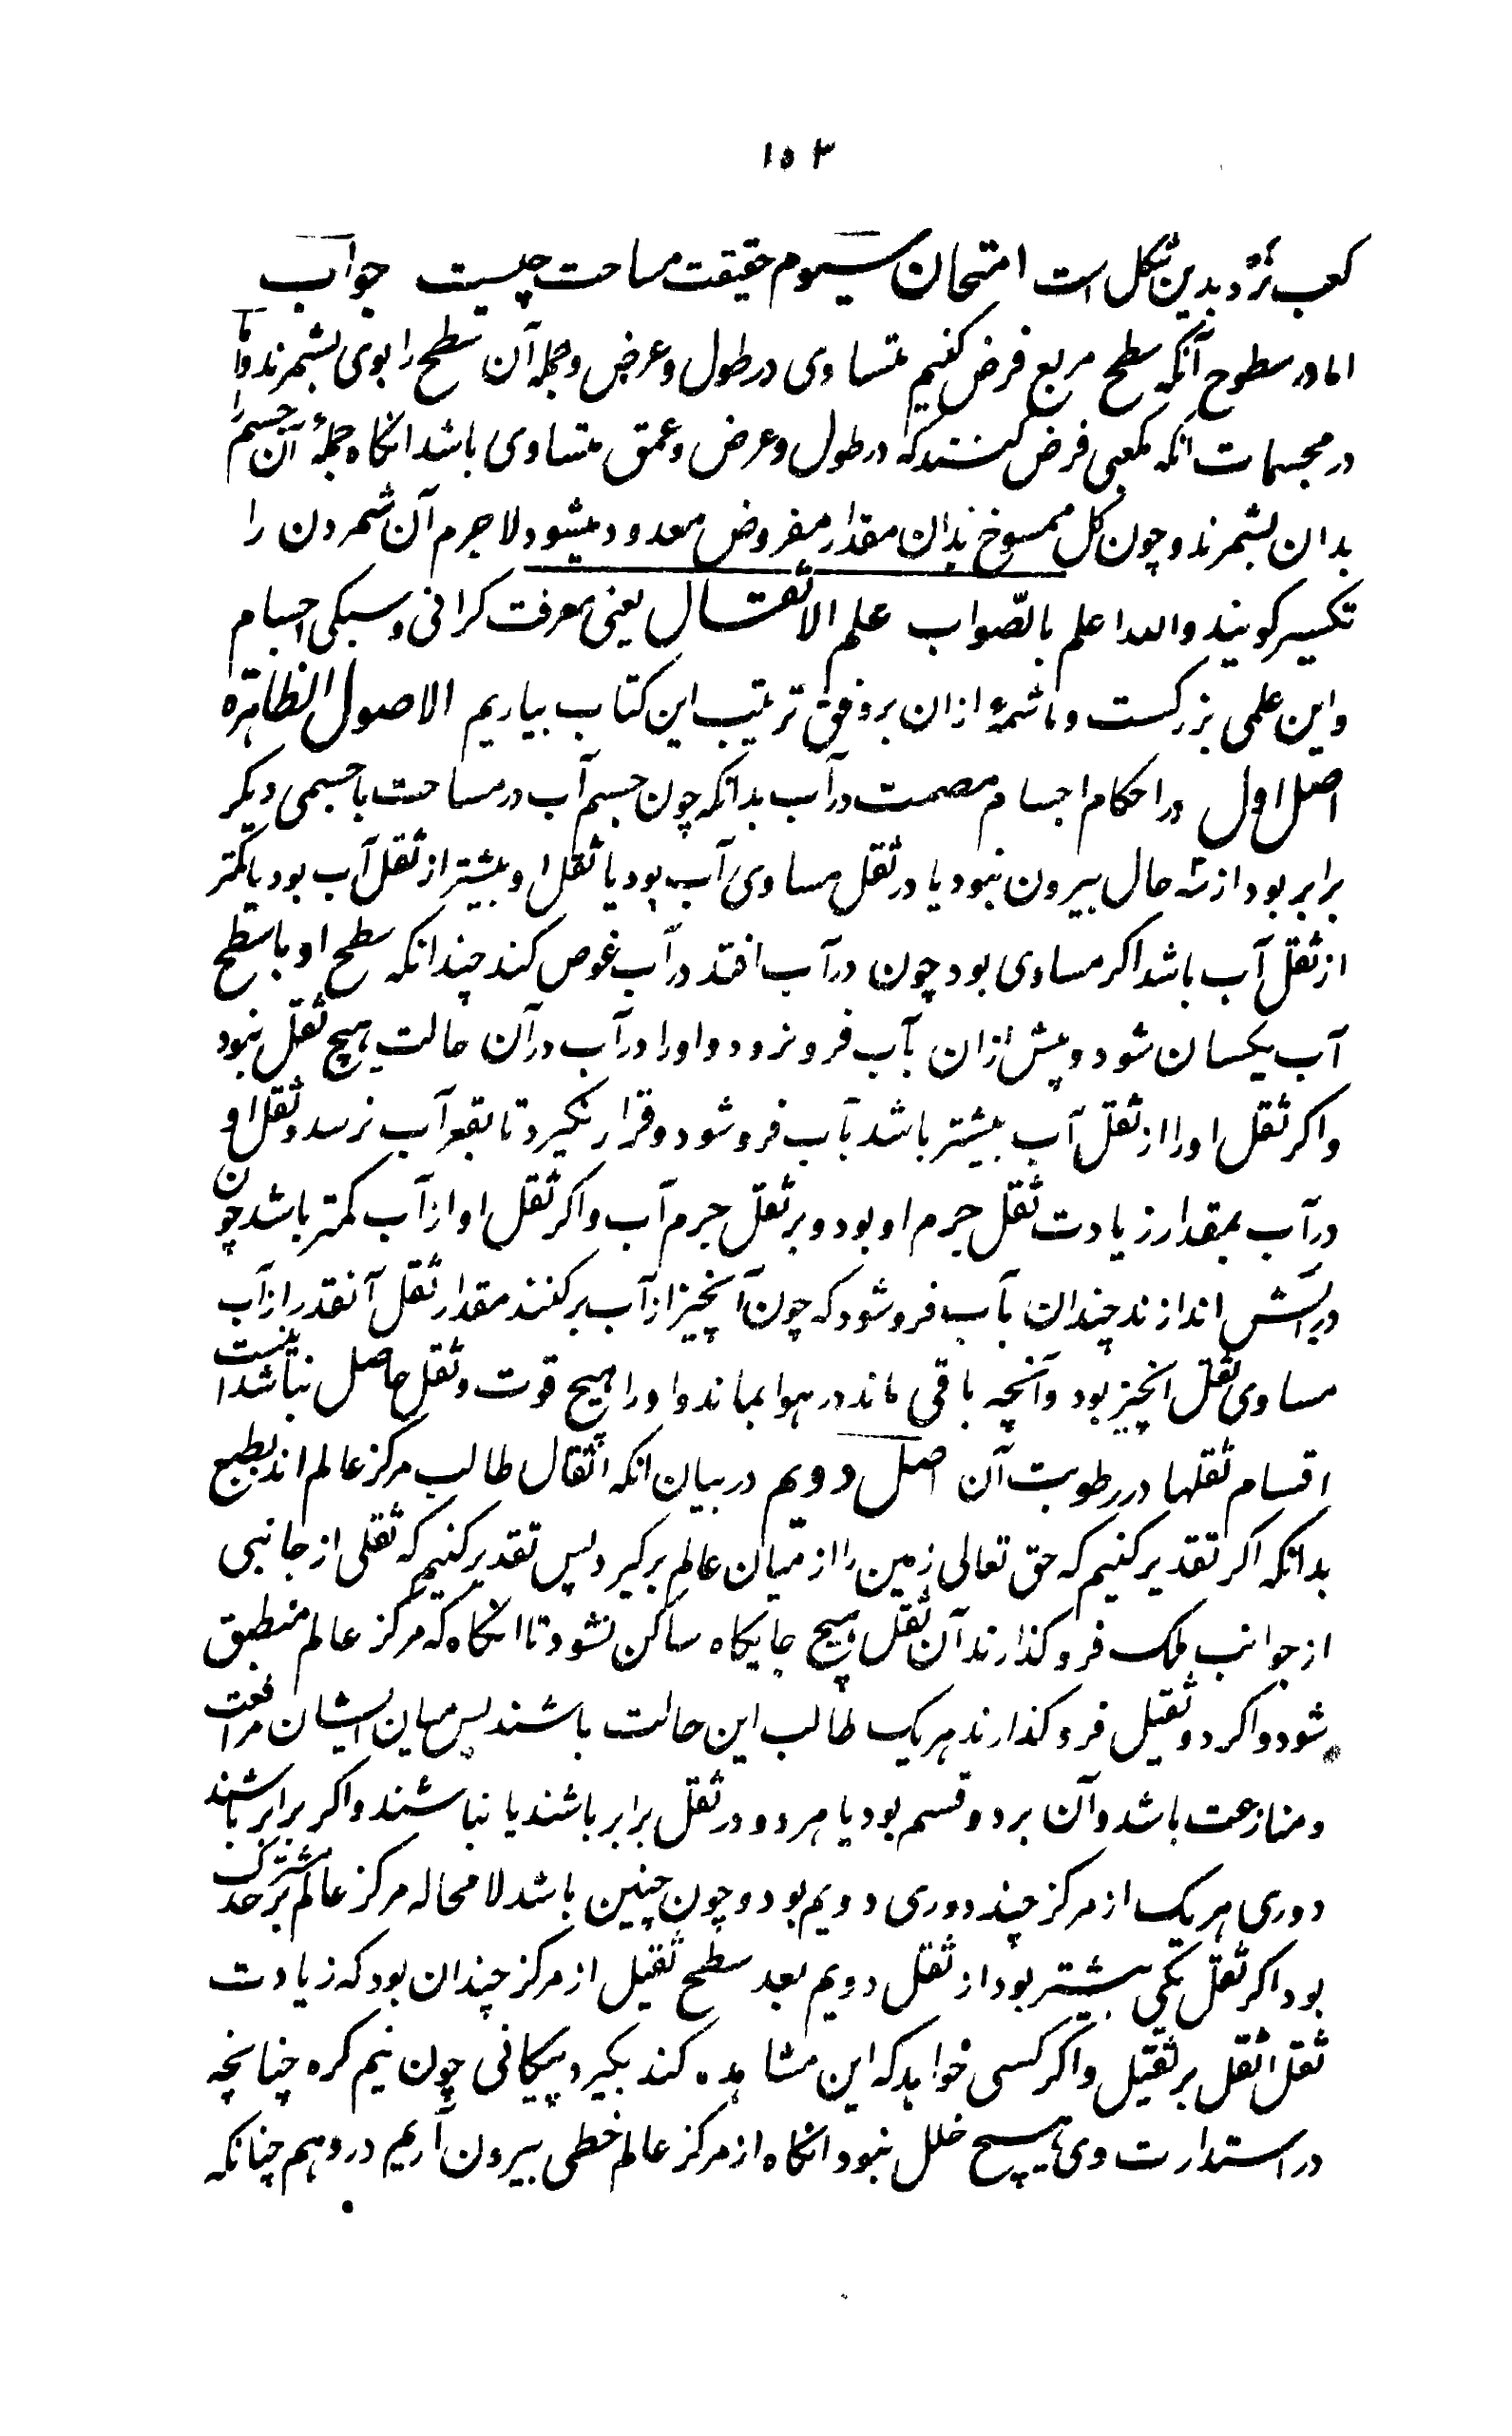 ۱۵۳
کعب نرد بدین شکل است امتحان سیوم حقیقت مساحت چیست جواب
اما در سطوح آنکه سطح مربع فرض کنیم متساوی در طول و عرض و جمله آن سطح را بوی بشمرند و اما
در مجسمات انکه مکعبی فرض کنند که در طول و عرض و عمق متساوی باشد انکاه جملهٔ آن جسم را
بدان بشمرند و چون کل ممسوخ بدان مقدار مفروض معدود میشود لاجرم آن شمردن را
تکسیر کویند والله اعلم بالصّواب علم الاثقال یعنی معرفت کرانی و سبکی اجسام
و این علمی بزرکست و ما شمهٔ ازان بر وفق ترتیب این کتاب بیاریم الاصول الظاهره
اصل اول در احکام اجسام مصمت در آب بدانکه چون جسم آب در مساحت با جسمی دیکر
برابر بود از سه حال بیرون نبود یا در ثقل مساوی آب بود یا ثقل او بیشتر از ثقل آب بود یا کمتر
از ثقل آب باشد اکر مساوی بود چون در آب افتد در آب غوص کند چندانکه سطح او با سطح
آب یکسان شود و پیش ازان بآب فرو نرود و او را در آب در آن حالت هیچ ثقل نبود
و اکر ثقل او را از ثقل آب بیشتر باشد بآب فرو شود و قرار نکیرد تا بقعر آب نرسد و ثقل او
در آب بمقدار زیادت ثقل جرم او بود و بر ثقل جرم آب و اکر ثقل او از آب کمتر باشد چون
در آبش اندازند چندان بآب فرو شود که چون آنچیز از آب بر کنند مقدار ثقل آنقدر از آب
مساوی ثقل انچیز بود و آنچه باقی ماند در هوا بماند و او را هیچ قوت و ثقل حاصل نباشد اینست
اقسام ثقلها در رطوبت آن اصل دویم در بیان انکه اثقال طالب مرکز عالم اند بطبع
بدانکه اکر تقدیر کنیم که حق تعالی زمین را از میان عالم برکیرد پس تقدیر کنیم که ثقلی از جانبی
از جوانب فلک فرو کذارند آن ثقل هیچ جایکاه ساکن نشود تا انکاه که مرکز عالم منطبق
شود و اکر دو ثقیل فرو کذارند هر یک طالب این حالت باشند پس میان ایشان مرافعت
و منازعت باشد و آن بر دو قسم بود یا هر دو در ثقل برابر باشند یا نباشند و اکر برابر باشند
دوری هر یک از مرکز چند دوری دویم بود و چون چنین باشد لامحاله مرکز عالم بر حد مشترک
بود اکر ثقل یکی بیشتر بود از ثقل دویم بعد سطح ثقیل از مرکز چندان بود که زیادت
ثقل اثقل بر ثقیل و اکر کسی خواهد که این مشاهده کند بکیرد پیکانی چون نیم کره چنانچه
در استدارت وی هیچ خلل نبود انکاه از مرکز عالم خطی بیرون آریم در وهم چنانکه